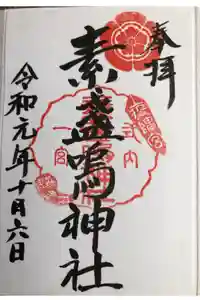 奉拝
素盞嗚神社
令和元年十月六日
式内
一宮